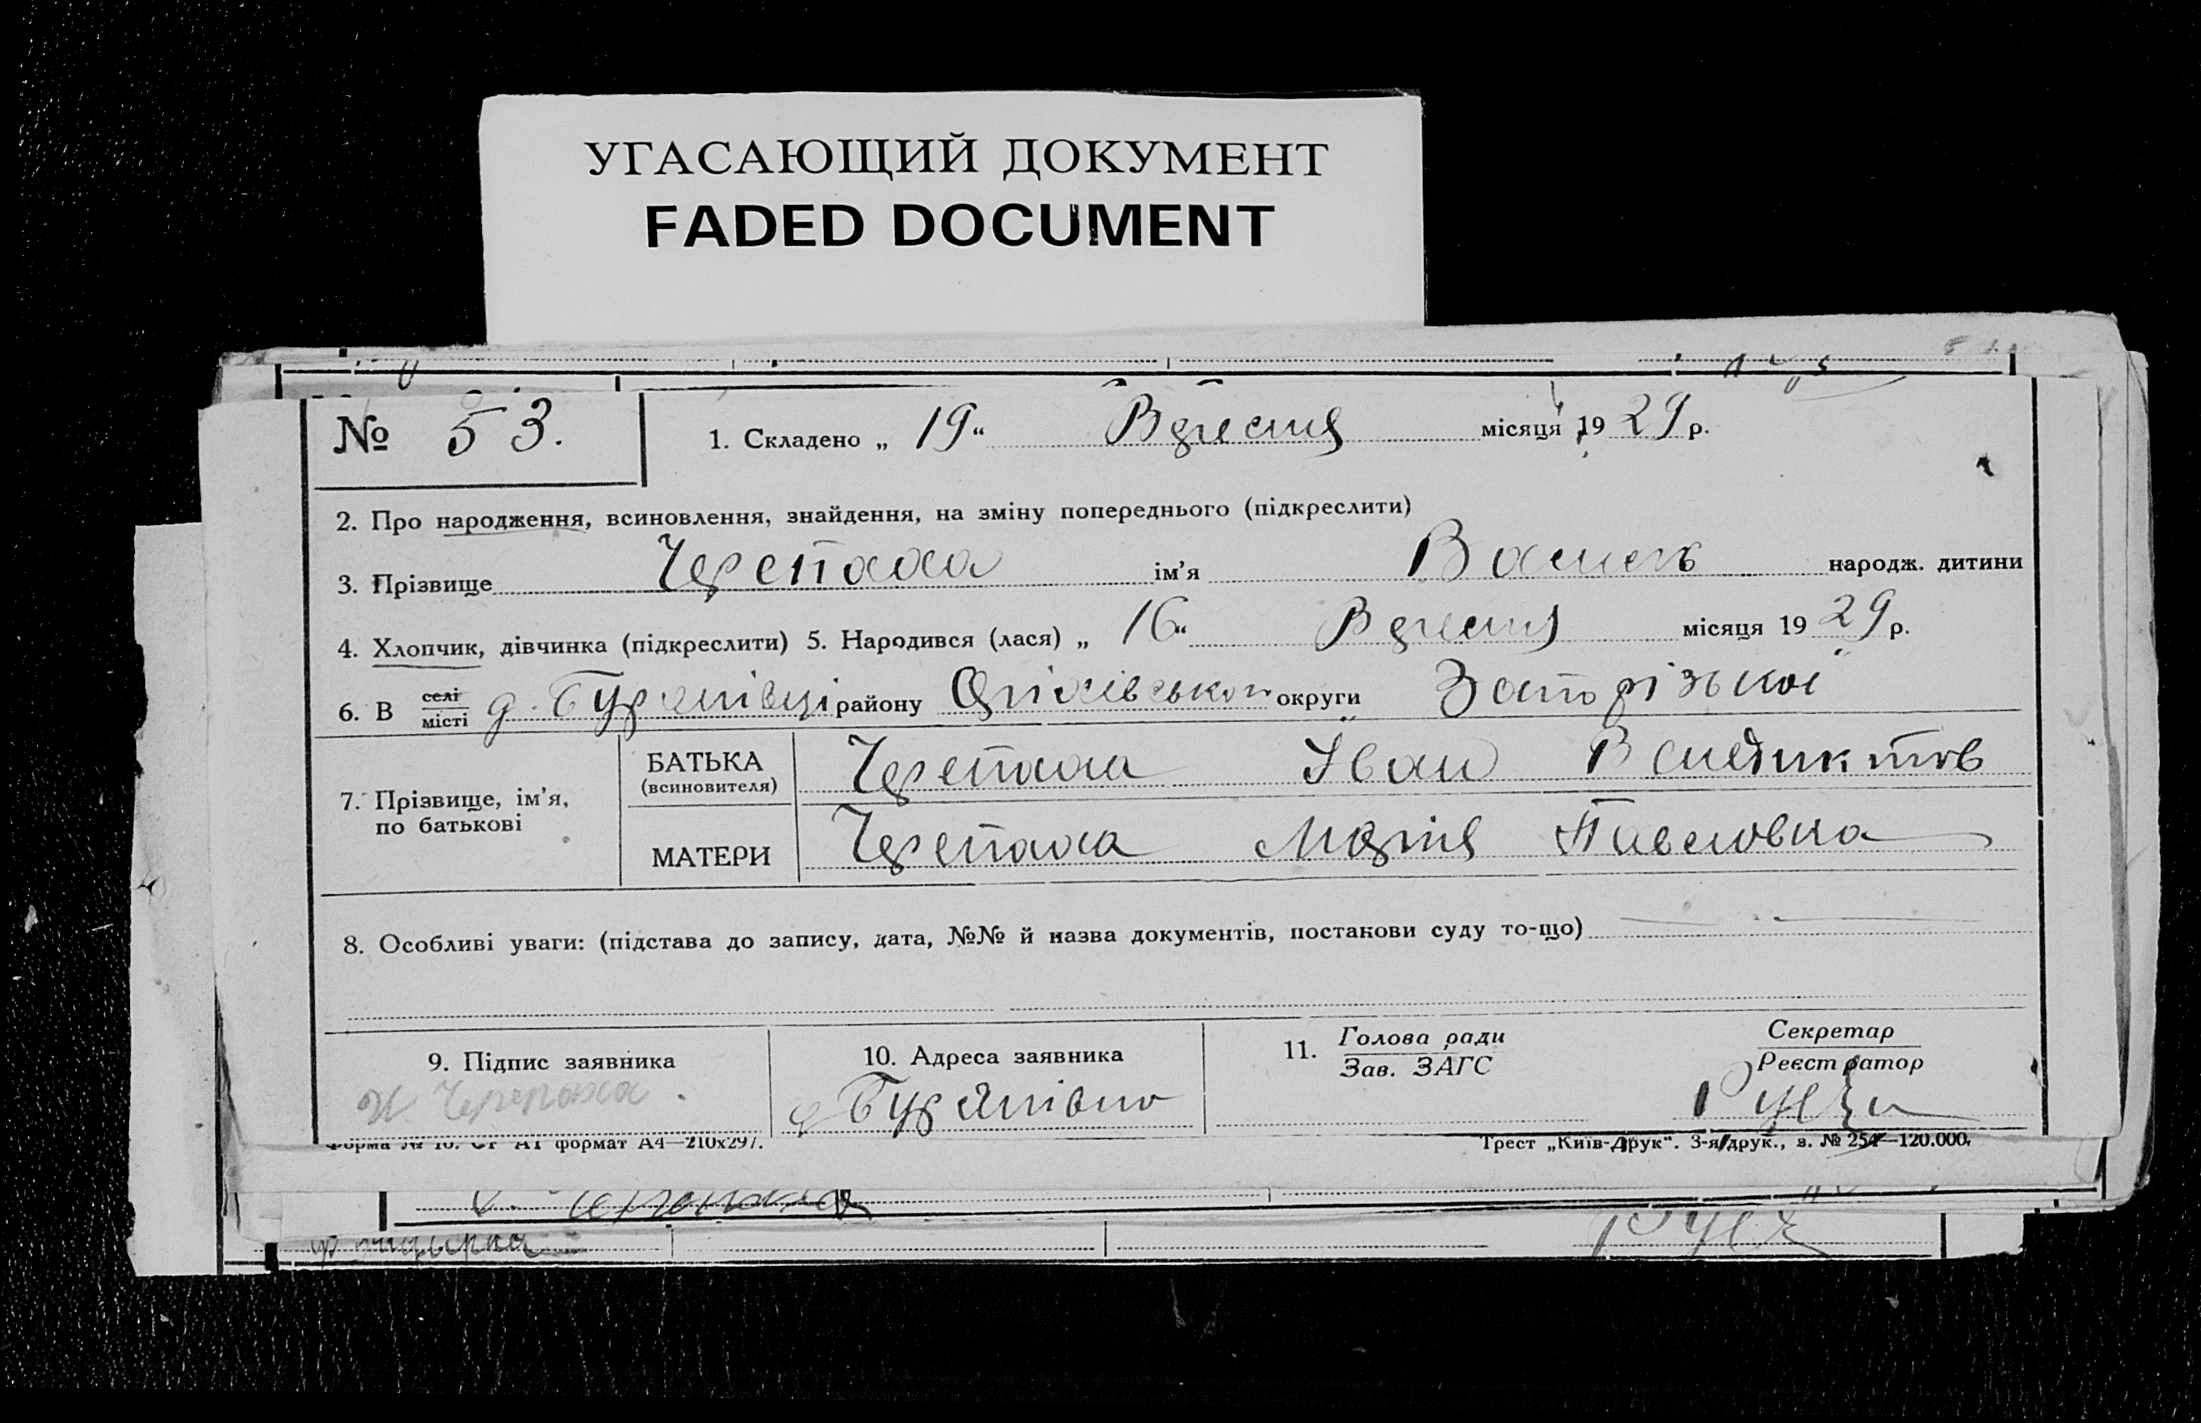 УГАСАЮЩИЙ ДОКУМЕНТ
FADED DOCUMENT
№ 53. 1. Складено „ 19 “ Вересня місяця 1929 р.
2. Про народження, всиновлення, знайдення, на зміну попереднього (підкреслити)
3. Прізвище Черепаха ім’я народж. дитини
4. Хлопчик, дівчинка (підкреслити) 5. Народився (лася) „ 16 “ Вересня місяця 1929 р.
6. В селі місті району Оріхівського округи Запорізької
7. Прізвище, ім’я, по батькові
БАТЬКА (всиновителя) Черепаха Іван Венедиктов
МАТЕРИ Черепаха Марія Павловна
8. Особливі уваги: (підстава до запису, дата, №№ й назва документів, постанови суду то-що)
9. Підпис заявника 10. Адреса заявника 11. Голова ради Зав. ЗАГС Секретар Реєстратор
Черепаха.
формат А4—210х297. Трест „Київ-Друк“. 3-я друк., з. № 254—120.000.